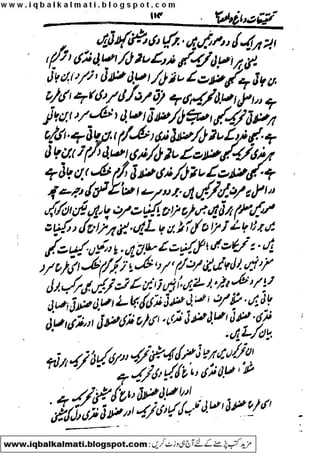 تحقیقات دماغ واعصاب
۱۱۴
البتہ ہر ایک کی دو صورتیں ہیں۔ جو کیمیاوی و مشینی کہلاتی ہیں
یعنی ہر اعصابی تحریک کبھی غدد کے ساتھ مل کر اعصابی غدی (تر گرم)
بن جاتی ہے کبھی عضلات کے ساتھ مل کر اعصابی عضلاتی (تر سرد) بن جاتی
ہے دراصل اعصابی تحریک ہی ہے فرق صرف گرمی سردی کا ہے اسی طرح
ہر عضلاتی تحریک کبھی اعصاب سے مل کر عضلاتی اعصابی (خشک سرد) بن جاتی
ہے۔ کبھی غدد کے ساتھ مل کر عضلاتی غدی (خشک گرم) بن جاتی ہے۔ اسی طرح
ہر غدی تحریک کبھی اعصاب کے ساتھ مل کر غدی اعصابی (گرم تر) بن جاتی
ہے۔ کبھی عضلات کے ساتھ مل کر غدی عضلاتی (گرم خشک) بن جاتی ہے
دراصل یہ صرف تین تحریکیں ہیں۔ جو دوسرے اعضا کے تعلق کی وجہ سے چھ
صورتیں معلوم ہوتی ہیں جس طرح مزاج یا کیفیات صرف چار ہیں لیکن ان کو آپس
میں جوڑا جائے تو مزاج کل آٹھ بن جاتے ہیں۔ یعنی ہر مزاج کی دو کیفیات
ہیں۔ یہ تحریکات بھی بالکل کیفیات کے مطابق ہیں۔ یاد رکھیں، کیفیات کبھی
مفرد نہیں بولی جاتیں یعنی صرف گرم، سرد، خشک یا تر بلکہ گرم خشک اسی طرح سرد
تر یا سرد خشک وغیرہ بولتے ہیں۔ انہیں قوانین کے تحت تحریکیں بھی مرکب بولی
جاتی ہیں۔ مثلاً صرف اعصابی عضلاتی غدی کی بجائے اعصابی عضلاتی اعصابی
غدی۔ عضلاتی اعصابی عضلاتی غدی، اسی طرح غدی عضلاتی اور غدی اعصابی
بیان کرتے ہیں۔
ان تحریکوں میں ہر حیاتی عضو کی ایک مشینی تحریک دوسری کیمیائی تحریک ہوتی ہے
مثلاً اعصابی غدی دماغ کی کیمیاوی تحریک ہے
اور اعصابی عضلاتی دماغ کی مشینی تحریک ہے۔
اسی طرح عضلاتی اعصابی قلب کی کیمیاوی تحریک اور عضلاتی غدی دل کی مشینی
www.iqbalkalmati.blogspot.com : مزید کتب پڑھنے کے لئے آج ہی وزٹ کریں
www.iqbalkalmati.blogspot.com